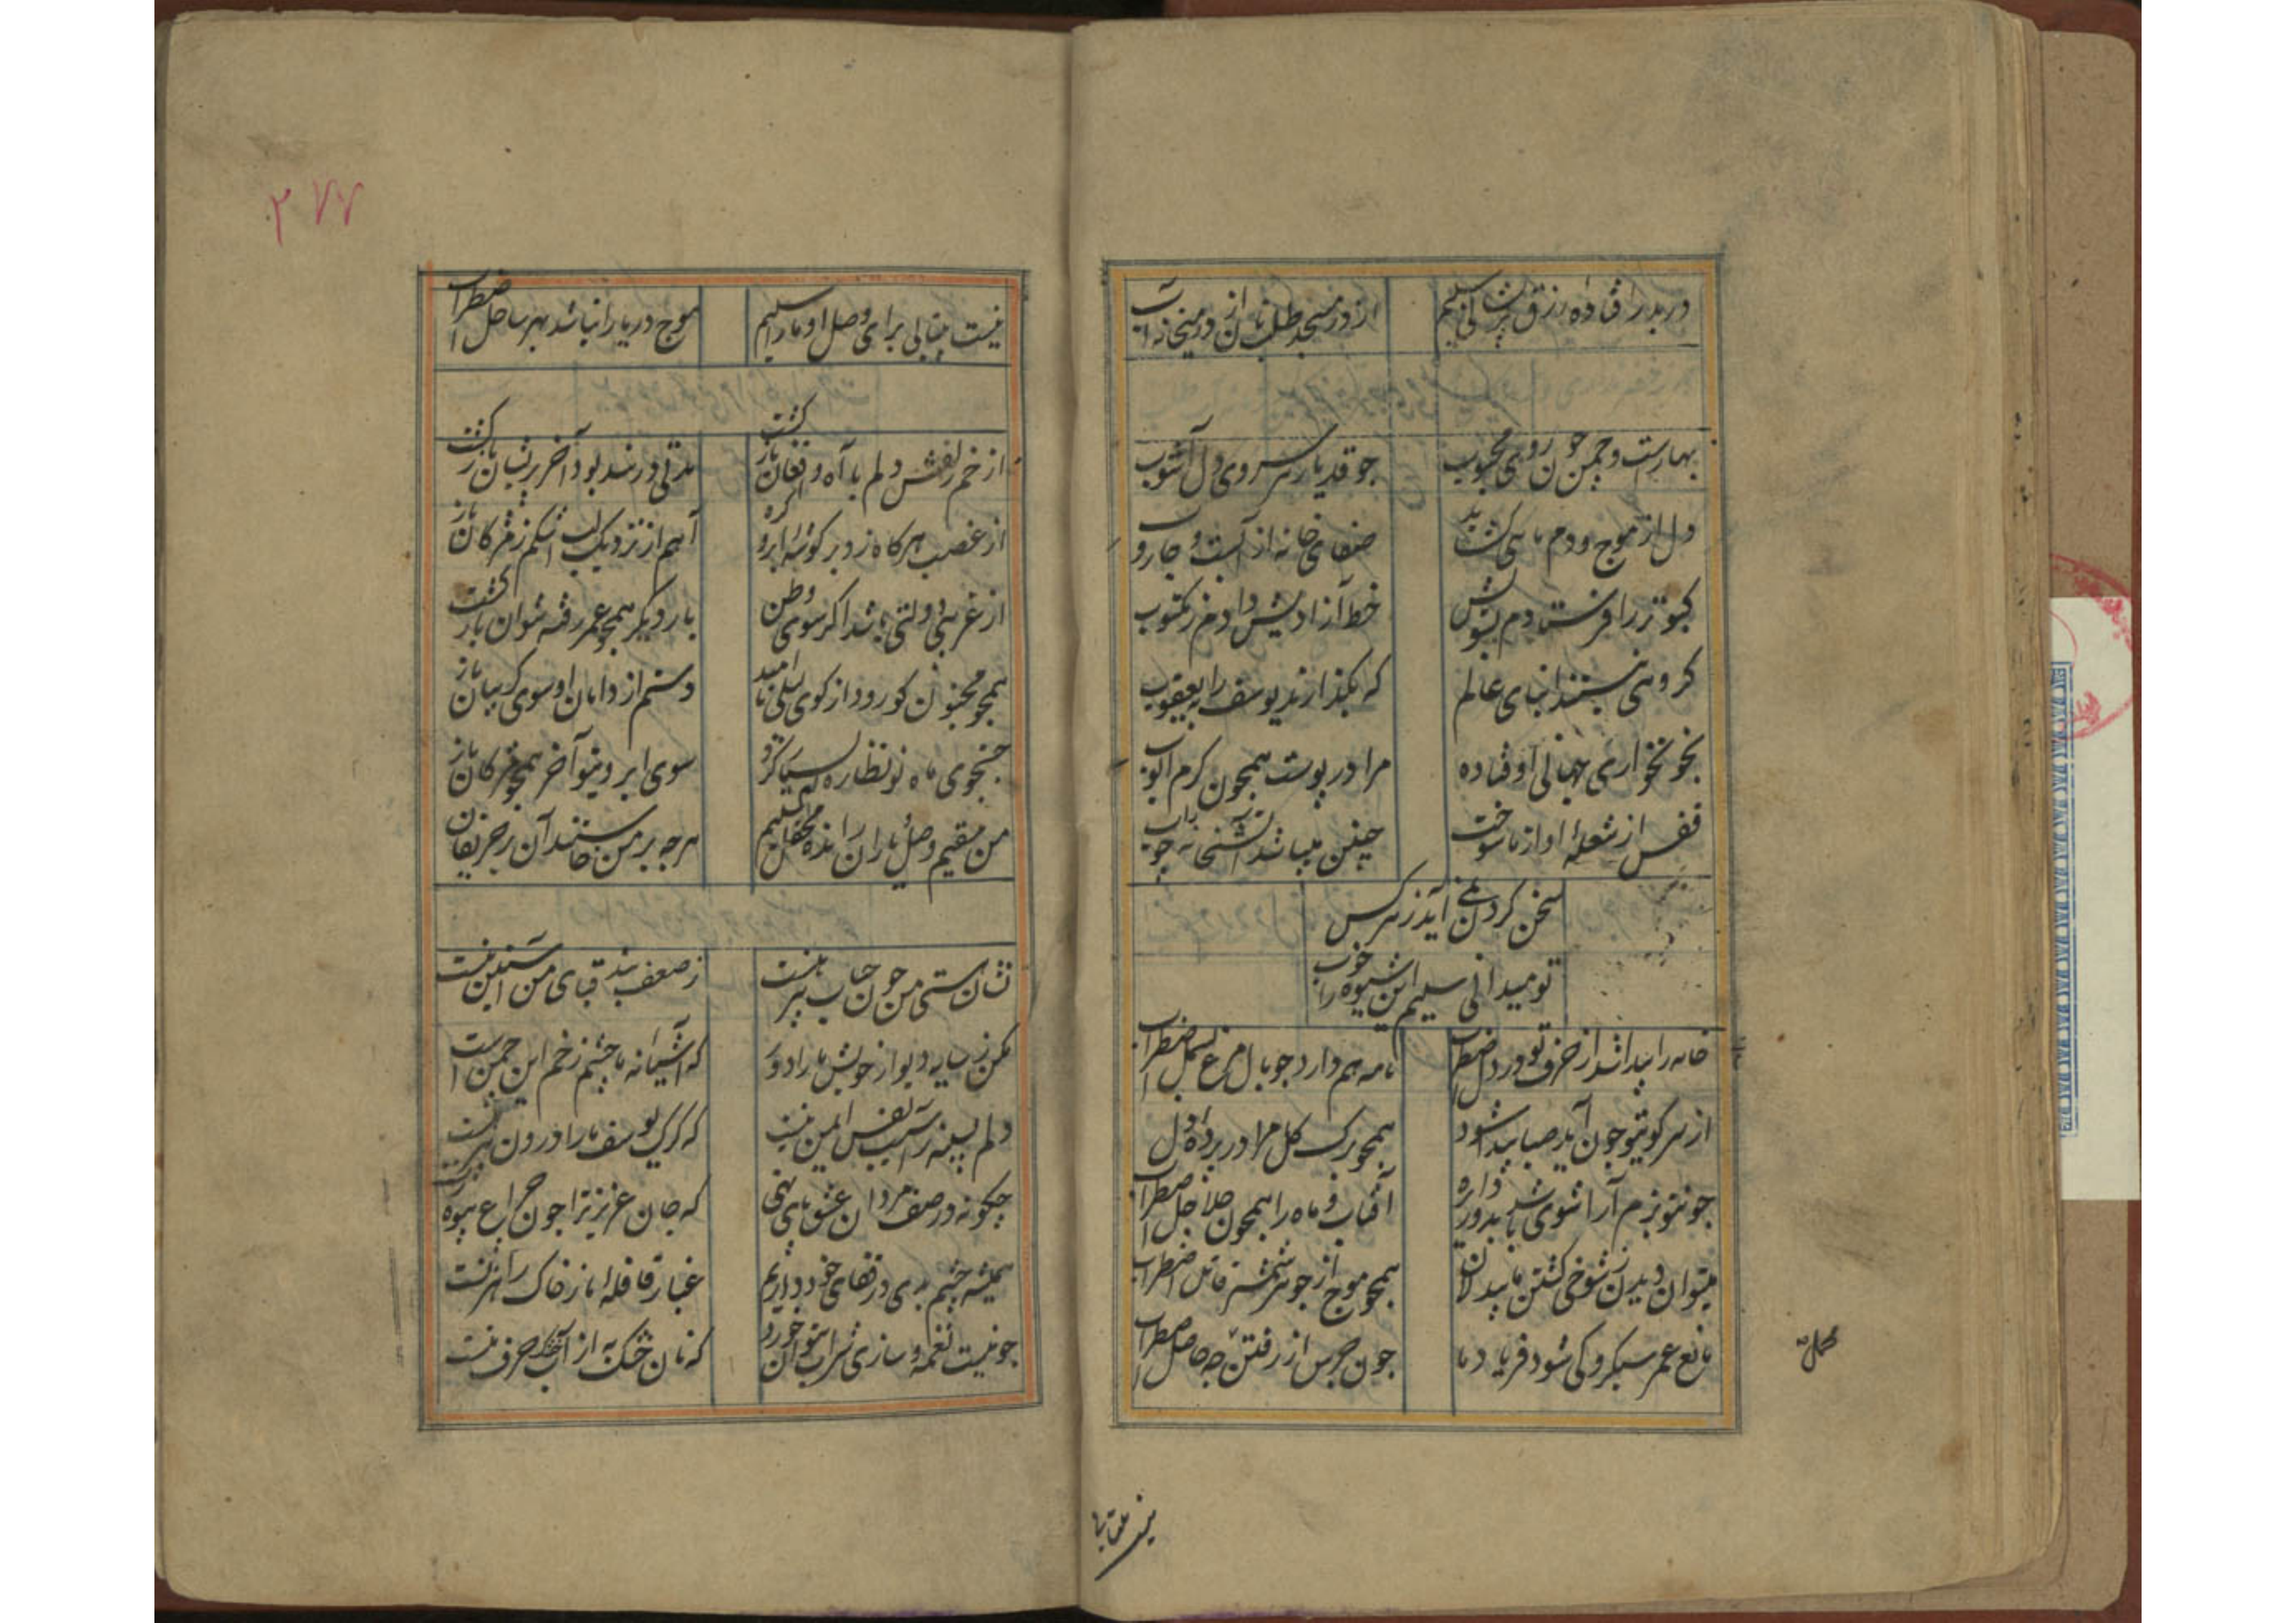 در بدر افتاده رزق پریشانی سلیم
از در مسجد طلب نان از در میخانه آب
بهارست و چمن چون روی محبوب
چو قد یار سروی دل آشوب
دل از موج و دم ماهی گشاید
صفای خانه از آبست و جاروب
کبوتر را فرستادم بسویش
خط آزادیش دادم ز مکتوب
گروهی نیستند ابنای عالم
که بگذارند یوسف را بیعقوب
بخونخواری جهانی اوفتاده
مرا در پوست همچون کرم ایوب
قفس از شعله آواز ما سوخت
چنین میباشد آتشخانه چوب
سخن کردن نمی آید ز هر کس
تو میدانی سلیم این شیوه را خوب
خامه را پیدا شد از حرف تو در دل اضطراب
نامه هم دارد چو بال مرغ بسمل اضطراب
از سر کویتو چون آید صبا پیدا شود
همچو برگ گل مرا در پرده دل
چونتو بزم آرا شوی باشد بدور
آفتاب و ماه را همچون جلاجل اضطراب
میتوان دیدن ز شوخی کشتن ما بیدلان
همچو موج از جوهر شمشیر قاتل اضطراب
مانع عمر سبکرو کی شود فریاد ما
چون جرس از رفتن چه حاصل اضطراب
نیست بیتابی
۲۷۷
نیست بیتابی برای وصل او ما را سلیم
موج دریا را نباشد بهر ساحل اضطراب
از خم زلفش دلم با آه و افغان بازگشت
مدتی در بند بود آخر پریشان بازگشت
از غضب هرگاه زد بر گوشه ابرو گره
آهم از نزدیک لب اشکم ز مژگان باز
از غریبی دولتی باشد اگر سوی وطن
بار دیگر همچو عمر رفته نتوان بازگشت
همچو مجنون کو رود از کوی لیلی نا امید
دستم از دامان او سوی گریبان باز
جستجوی ماه نو نظاره بسیار کرد
سوی ابرویتو آخر همچو مژگان باز
من مقیم وصل یاران رانده محفل سلیم
هرچه بر من خواستند آن بر حریفان
نشان هستی من چون حباب پیرهنست
ز ضعف بند قبای من آستین منست
مکن ز سایه دیوار خویش ما را دور
که آشیانه ما چشم زخم این چمن است
دلم بسینه ز آسیب نفس ایمن نیست
که گرگ یوسف ما را درون پیرهنست
چگونه در صف مردان عشق پای نهی
که جان عزیز ترا چون چراغ بیوه زنست
همیشه چشم بدی در قفای خود داریم
غبار قافله ما ز خاک راهزنست
چو نیست نغمه و سازی شراب نتوان خورد
که نان خشک به از آبگ حرف منست